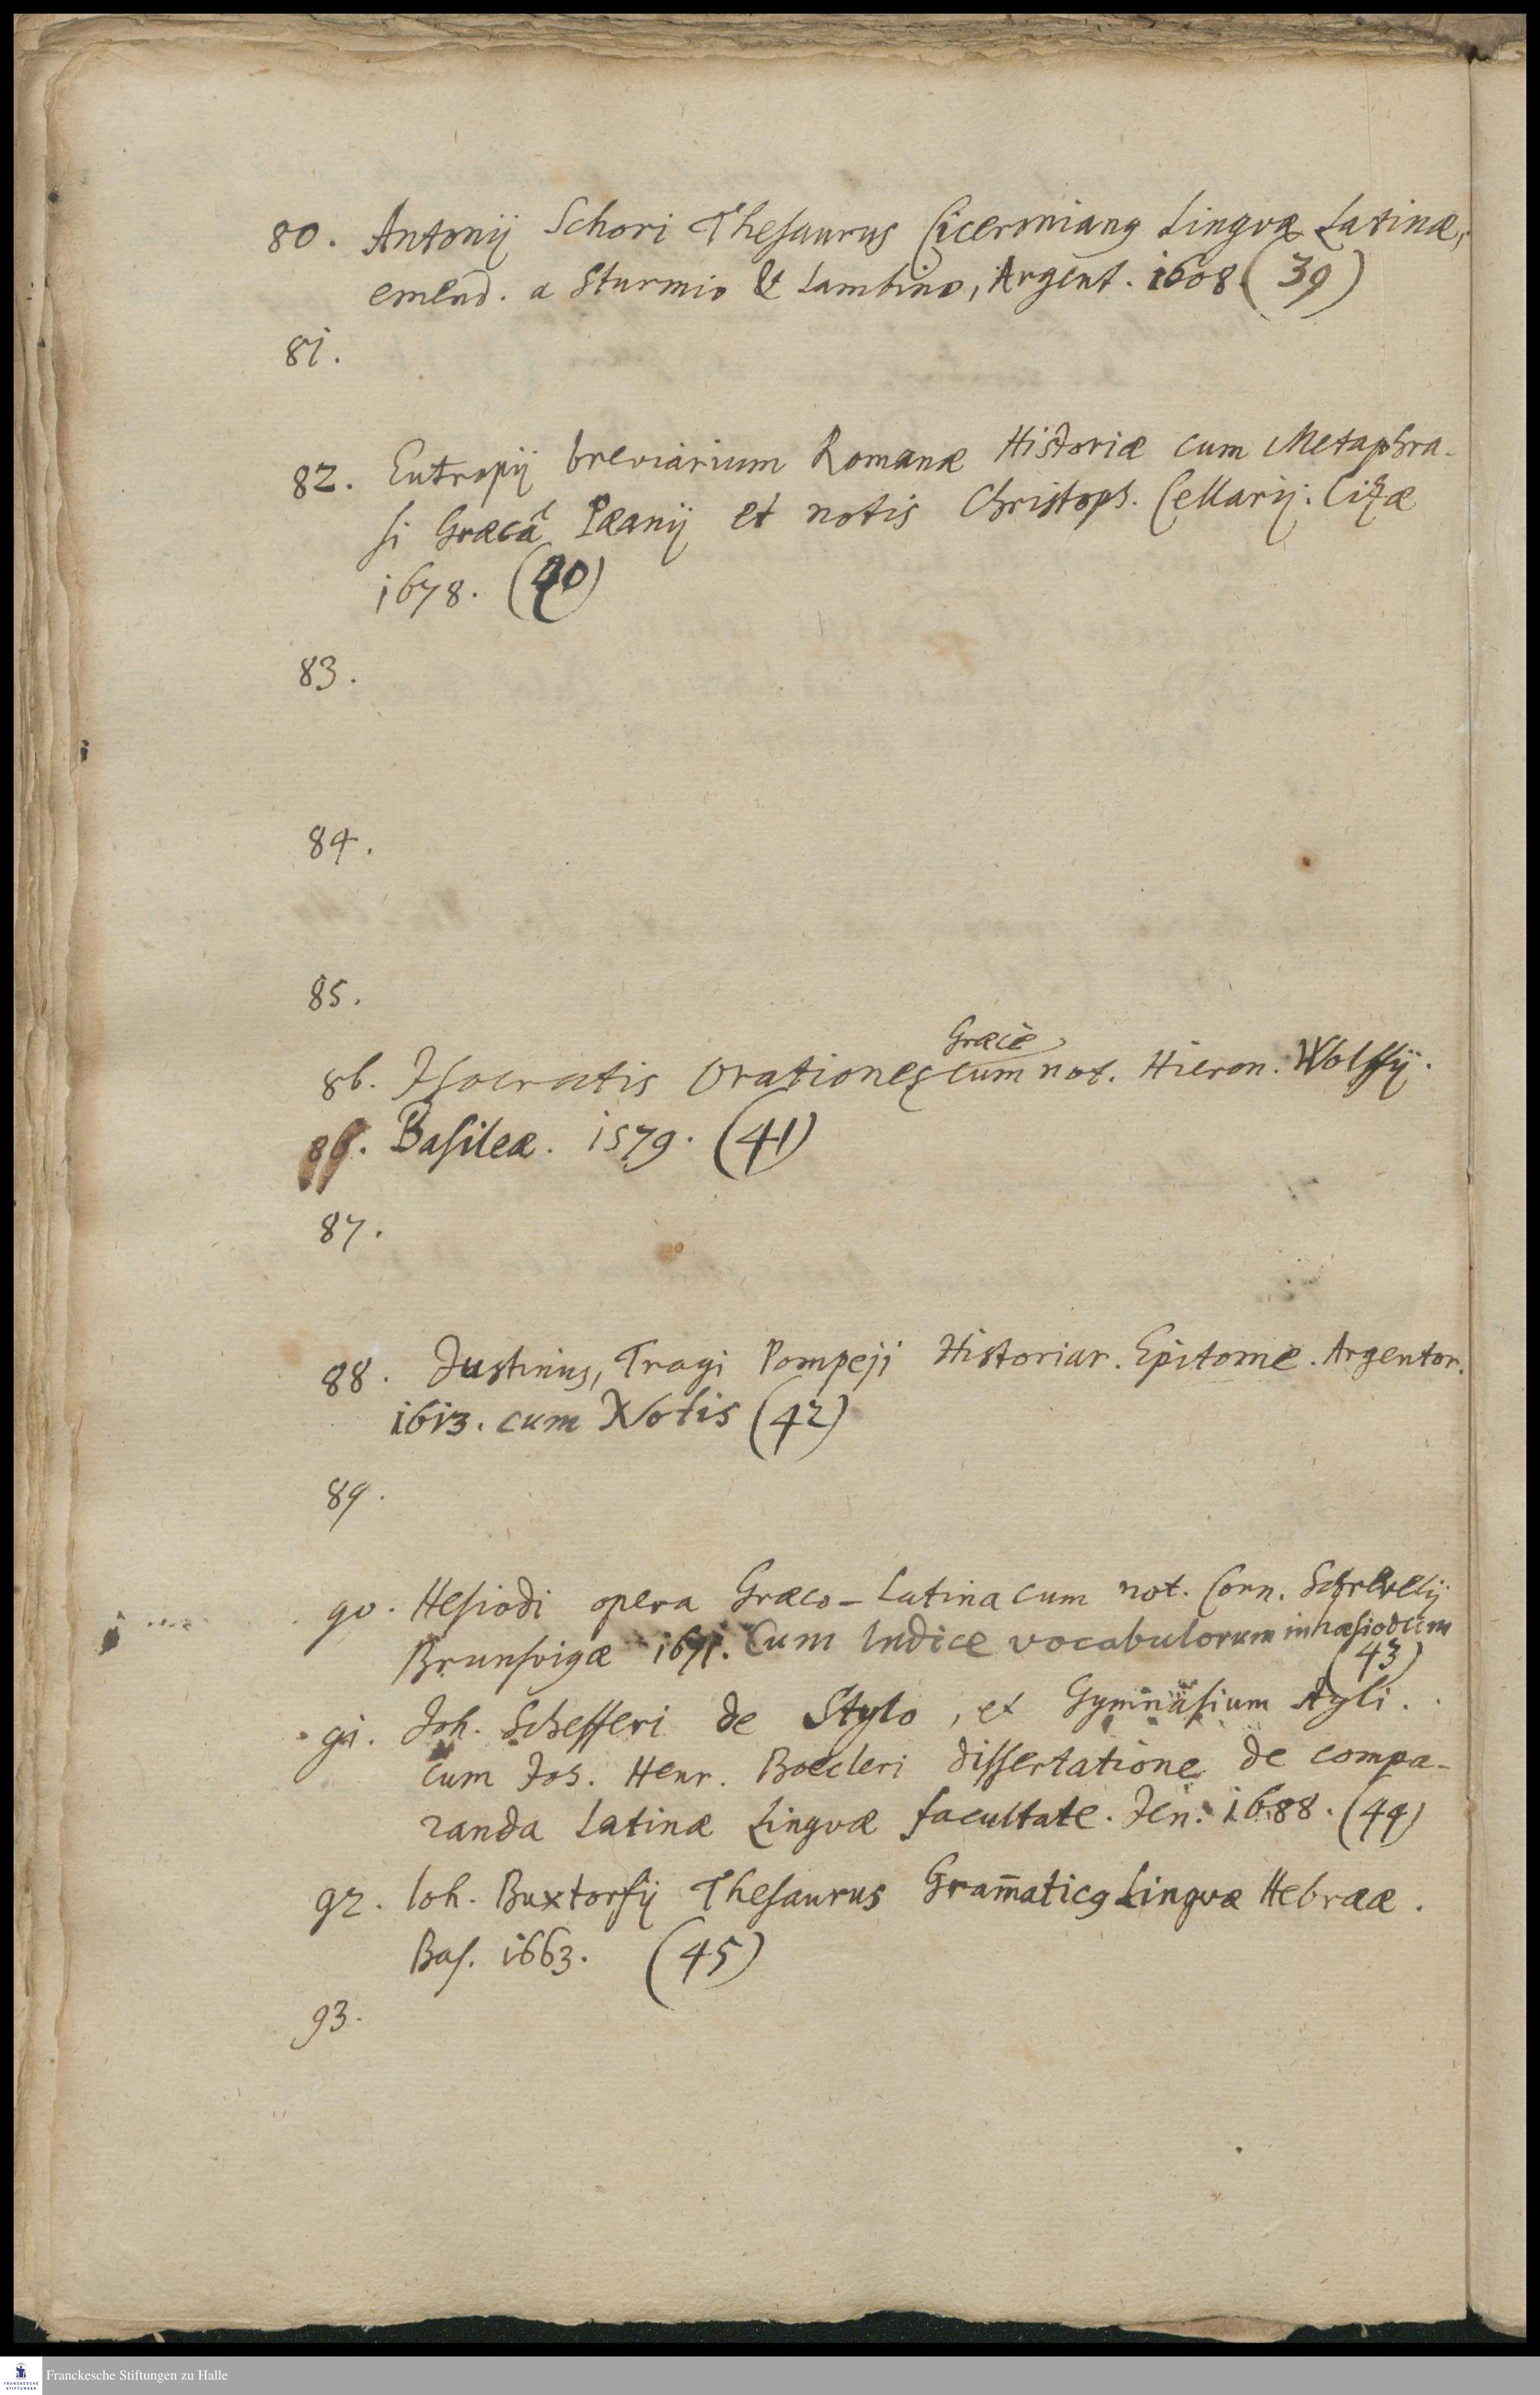 80. Antonij Schori Thesaurus Ciceronianę Lingvæ Latinæ,
emend. a Sturmio & Lambino, Argent. 1608. (39)
81.
82. Eutropij breviarium Romanæ Historiæ cum Metaphra-
si Græcâ Pæanij et notis Christoph. Cellarij. Cizæ
1678. (40)
83.
84.
85.
Græcè
86. Isocratis Orationes cum not. Hieron. Wolffij.
86. Basileæ. 1579. (41)
87.
88. Justinus, Trogi Pompeji Historiar. Epitome. Argentor.
1613. cum Notis (42)
89.
90. Hesiodi opera Græco-Latina cum not. Corn. Schrevelij
Brunsvigæ 1671. Cum Indice vocabulorum in hæsiodum
(43)
91. Joh. Schefferi de Stylo, et Gymnasium styli.
cum Joh. Henr. Boecleri dissertatione de compa-
randa Latinæ Lingvæ facultate. Jen. 1688. (44)
92. Ioh. Buxtorfij Thesaurus Gram̄aticę Lingvæ Hebrææ.
Bas. 1663. (45)
93.
Franckesche Stiftungen zu Halle
FRANCKESCHE
STIFTUNGEN